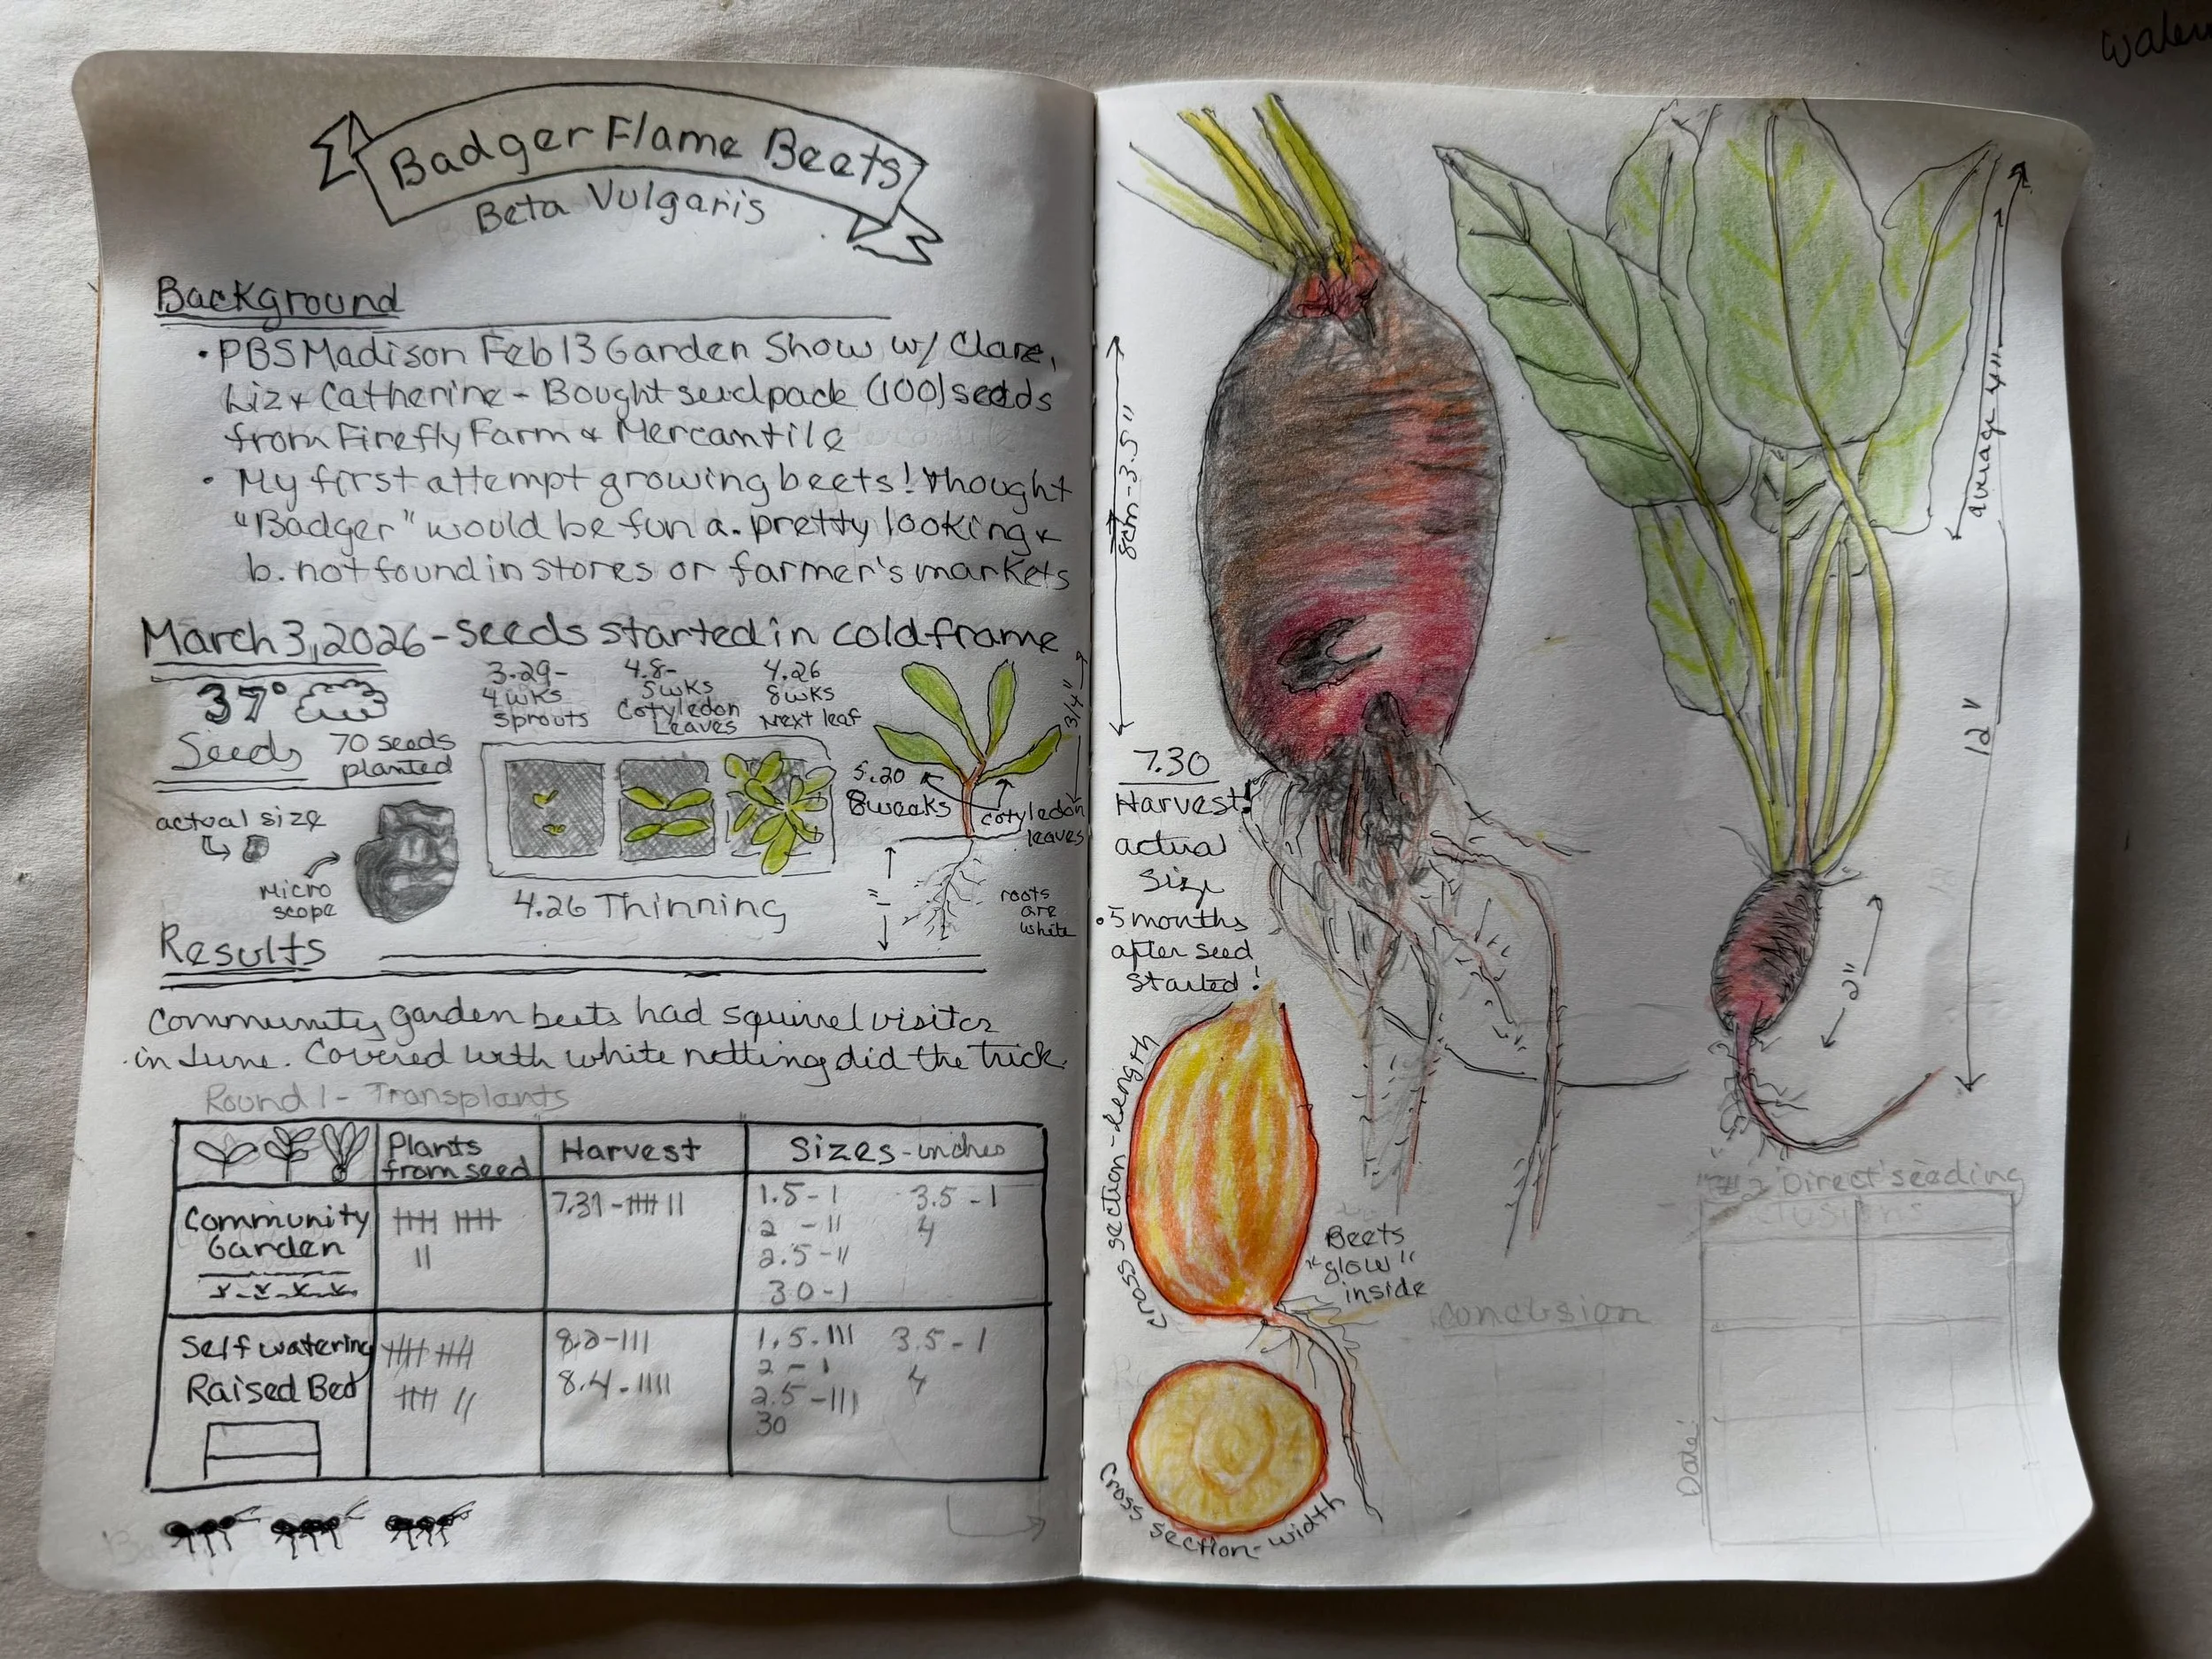 Badger Flame Beets
Beta Vulgaris
Background
• PBS Madison Feb 13 Garden Show w/ Clare,
Liz & Catherine - Bought seedpack (100) seeds
from Firefly Farm & Mercantile
• My first attempt growing beets! thought
"Badger" would be fun a. pretty looking &
b. not found in stores or farmer's markets
March 3, 2026 - seeds started in cold frame
37°
Seeds
70 seeds
planted
actual size
micro
scope
3.29-
4 wks
sprouts
4.8-
5 wks
Cotyledon
Leaves
4.26
8 wks
Next leaf
4.26 Thinning
5.20
8 weeks
cotyledon
leaves
3/4"
1"
roots
are
white
Results
Community garden beets had squirrel visitor
in June. Covered with white netting did the trick.
Round 1 - Transplants
Plants
from seed
Harvest
Sizes - inches
Community
Garden
卌 卌
II
7.31 - 卌 II
1.5 - I 3.5 - I
2 - II 4
2.5 - II
30 - I
Self watering
Raised Bed
卌 卌
卌 II
8.2 - III
8.4 - IIII
1.5 - III 3.5 - I
2 - I 4
2.5 - III
30
8cm - 3.5"
7.30
Harvest!
actual
size
• 5 months
after seed
started!
average 4"
12"
2"
cross section - length
Beets
"glow"
inside
cross section - width
Conclusion
Direct seeding
Date: